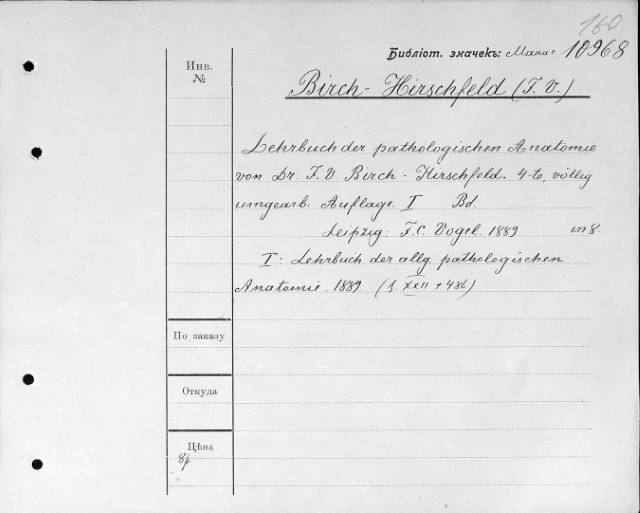 160
Библіот. значекъ: 10968
Инв.
№
Birch-Hirschfeld (F. V.)
Lehrbuch der pathologischen Anatomie
von Dr. F. V. Birch-Hirschfeld. 4-te, völlig
umgearb. Auflage. I Bd.
Leipzig: F. C. Vogel. 1889 in 8.
I: Lehrbuch der allg. pathologischen
Anatomie. 1889 (S. XXII + 486)
По заказу
Откуда
Цѣна
8р.